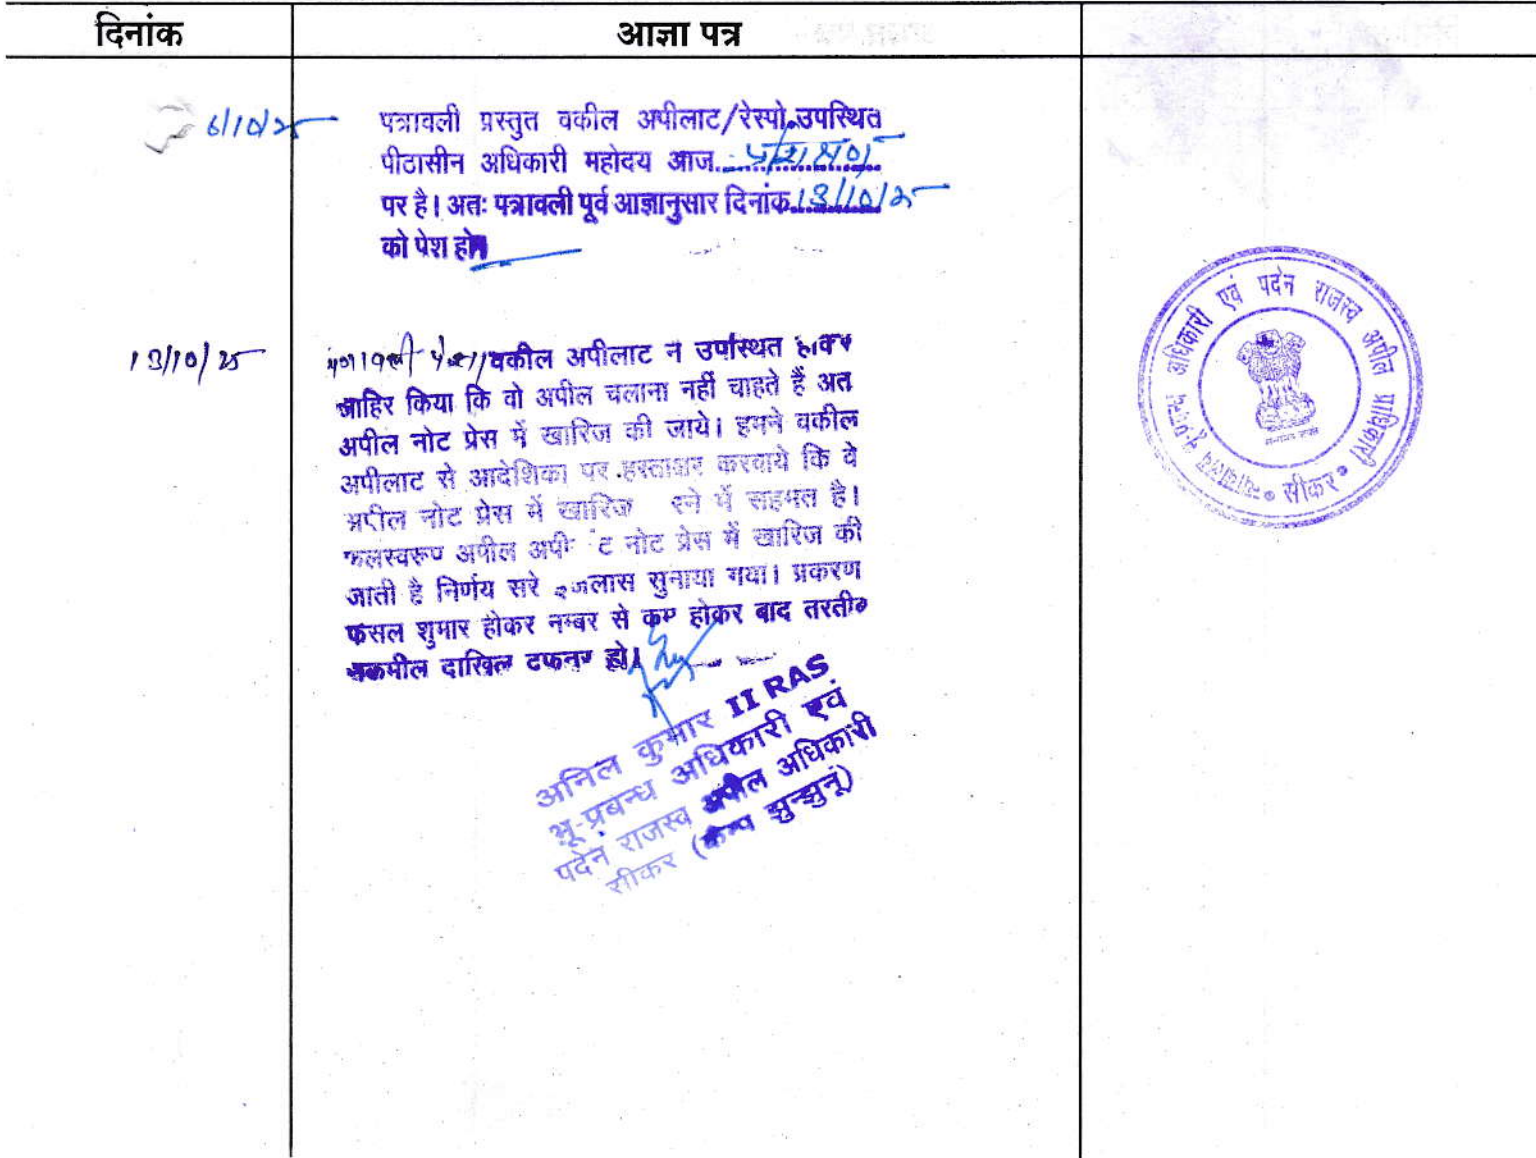 दिनांक
आज्ञा पत्र
6/10/25
पत्रावली प्रस्तुत वकील अपीलाट/रेस्पो.उपस्थित
पीठासीन अधिकारी महोदय आज
पर है। अतः पत्रावली पूर्व आज्ञानुसार दिनांक 13/10/25
को पेश हो।
13/10/25
पत्रावली पेश। वकील अपीलाट न उपस्थित होकर
जाहिर किया कि वो अपील चलाना नहीं चाहते हैं अत
अपील नोट प्रेस में खारिज की जाये। हमने वकील
अपीलाट से आदेशिका पर हस्ताक्षर करवाये कि वे
अपील नोट प्रेस में खारिज रने में सहमत है।
फलस्वरूप अपील अपी ट नोट प्रेस में खारिज की
जाती है निर्णय सरे इजलास सुनाया गया। प्रकरण
फसल शुमार होकर नम्बर से कम होकर बाद तरतीब
तकमील दाखिल दफ्तर हो।
अनिल कुमार II RAS
भू-प्रबन्ध अधिकारी एवं
पदेन राजस्व अपील अधिकारी
सीकर (कैम्प झुन्झुनू)
न्यायालय भू-प्रबन्ध अधिकारी एवं पदेन राजस्व अपील प्राधिकारी
सीकर